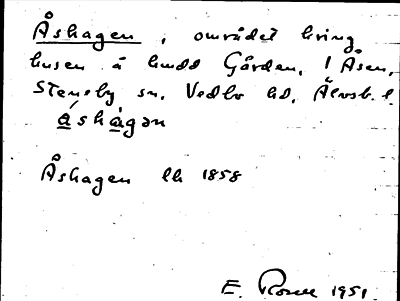 Åshagen, området kring
husen å hmdd Gården, 1 Åsen,
Stensby sn, Vedbo hd, Älvsb. l.
åshagən
Åshagen lh 1858
E. 1951